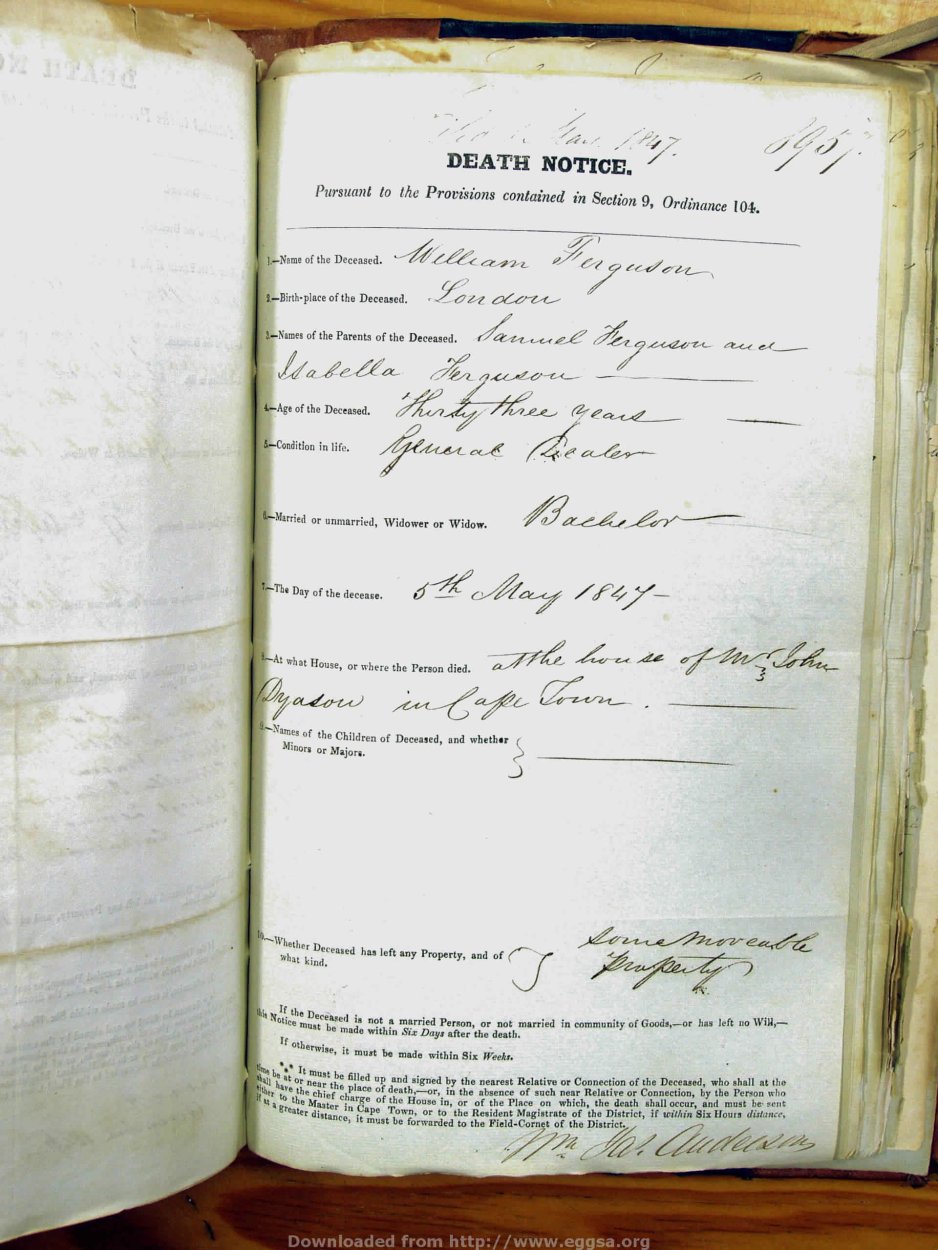 1847.
8957.
DEATH NOTICE.
Pursuant to the Provisions contained in Section 9, Ordinance 104.
1.—Name of the Deceased. William Ferguson
2.—Birth-place of the Deceased. London
3.—Names of the Parents of the Deceased. Samuel Ferguson and
Isabella Ferguson
4.—Age of the Deceased. Thirty three years
5.—Condition in life. General Dealer
6.—Married or unmarried, Widower or Widow. Bachelor
7.—The Day of the decease. 5th May 1847-
8.—At what House, or where the Person died. at the house of Mr John
Dyason in Cape Town.
9.—Names of the Children of Deceased, and whether
Minors or Majors.
10.—Whether Deceased has left any Property, and of
what kind.
some moveable
property
If the Deceased is not a married Person, or not married in community of Goods,—or has left no Will,—
this Notice must be made within Six Days after the death.
If otherwise, it must be made within Six Weeks.
*** It must be filled up and signed by the nearest Relative or Connection of the Deceased, who shall at the
time be at or near the place of death,—or, in the absence of such near Relative or Connection, by the Person who
shall have the chief charge of the House in, or of the Place on which, the death shall occur, and must be sent
either to the Master in Cape Town, or to the Resident Magistrate of the District, if within Six Hours distance,
if at a greater distance, it must be forwarded to the Field-Cornet of the District.
Wm Anderson
Downloaded from http://www.eggsa.org